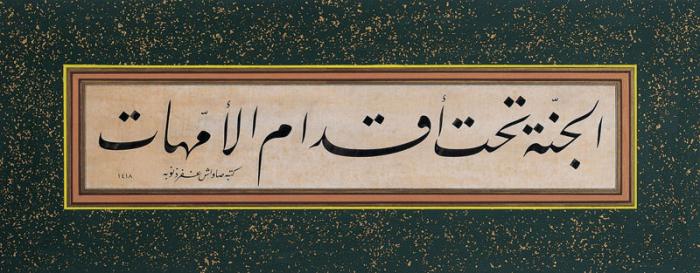 الجنّة تحت أقدام الأمّهات
كتبه صاواش غفر ذنوبه
١٤١٨